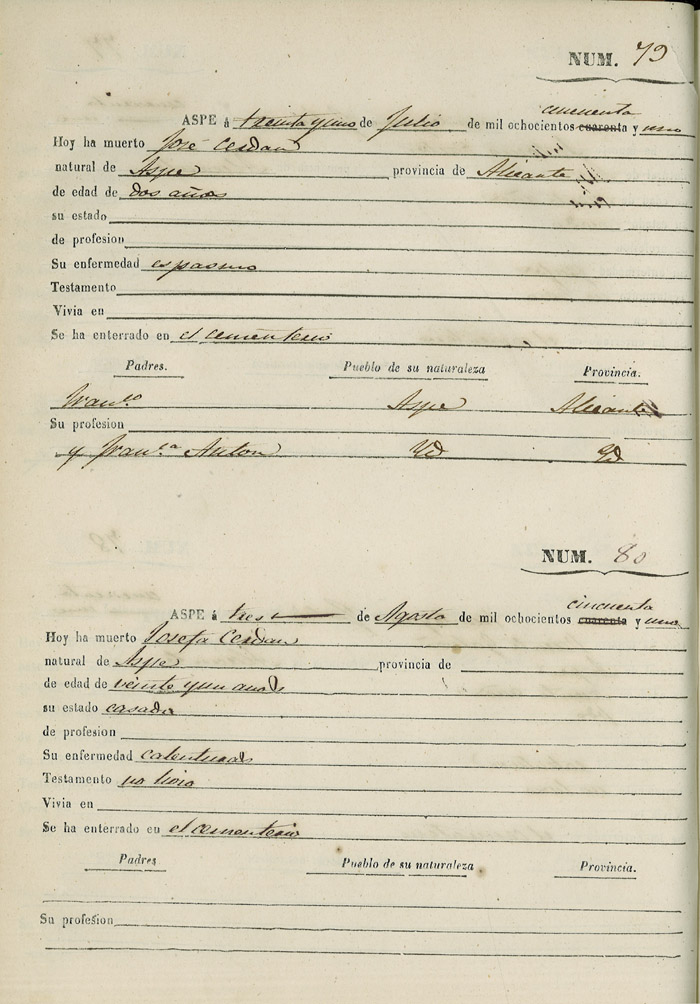 NUM. 79
cincuenta
ASPE á treinta y uno de Julio de mil ochocientos cuarenta y uno
Hoy ha muerto José Cerdan
natural de Aspe provincia de Alicante
de edad de dos años
su estado
de profesion
Su enfermedad espasmo
Testamento
Vivia en
Se ha enterrado en el cementerio
Padres. Pueblo de su naturaleza Provincia.
Fran.co Aspe Alicante
Su profesion
y Fran.ca Anton Yd Yd
NUM. 80
cincuenta
ASPE á tres de Agosto de mil ochocientos cuarenta y uno
Hoy ha muerto Josefa Cerdan
natural de Aspe provincia de
de edad de veinte y un años
su estado casada
de profesion
Su enfermedad calenturas
Testamento no hizo
Vivia en
Se ha enterrado en el cementerio
Padres Pueblo de su naturaleza Provincia.
Su profesion